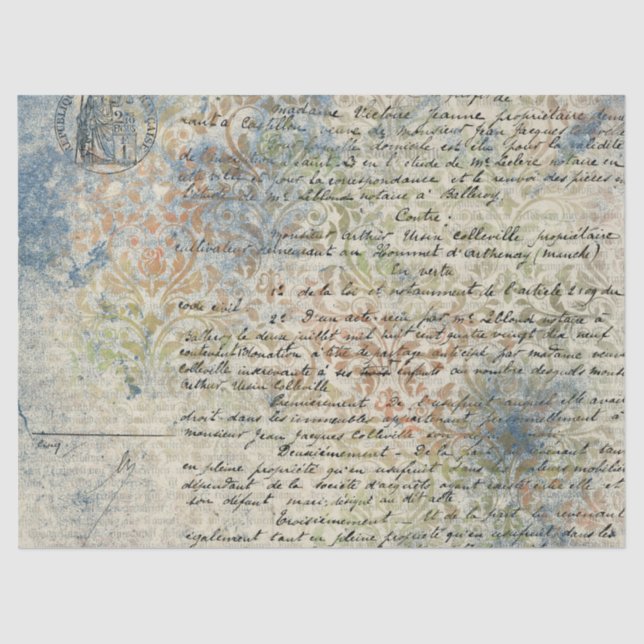 RÉPUBLIQUE FRANÇAISE
2 10
EN SUS
profit de
madame Victoire Jeanne propriétaire
à Castillon veuve de monsieur Jean Jacques Colleville
domicile est élu pour la validité
Saint-Lô en l'étude de Me Leclerc notaire en
cette ville et pour la correspondance et le renvoi des pièces en
l'étude de Me Leblond notaire à Balleroy.
Contre
monsieur Arthur Ursin Colleville propriétaire
cultivateur demeurant au Hommet d'Arthenay (manche)
En vertu
1º de la loi et notamment de l'article 2109 du
code civil
2º D'un acte reçu par Me Leblond notaire à
Balleroy le deux juillet mil huit cent quatre vingt dix neuf
contenant Donation à titre de partage anticipé par madame veuve
Colleville à ses trois enfants au nombre desquels
Arthur Ursin Colleville
Premièrement De l'usufruit auquel elle avait
droit dans les immeubles appartenant personnellement à
monsieur Jean Jacques Colleville son
Deuxièmement - De la part lui revenant tant
en pleine propriété qu'en usufruit dans les valeurs mobilières
dépendant de la société d'acquêts ayant existé entre elle et
son défunt mari, désigné au dit acte
Troisièmement - Et de la part lui revenant
également tant en pleine propriété qu'en usufruit dans les
cinq